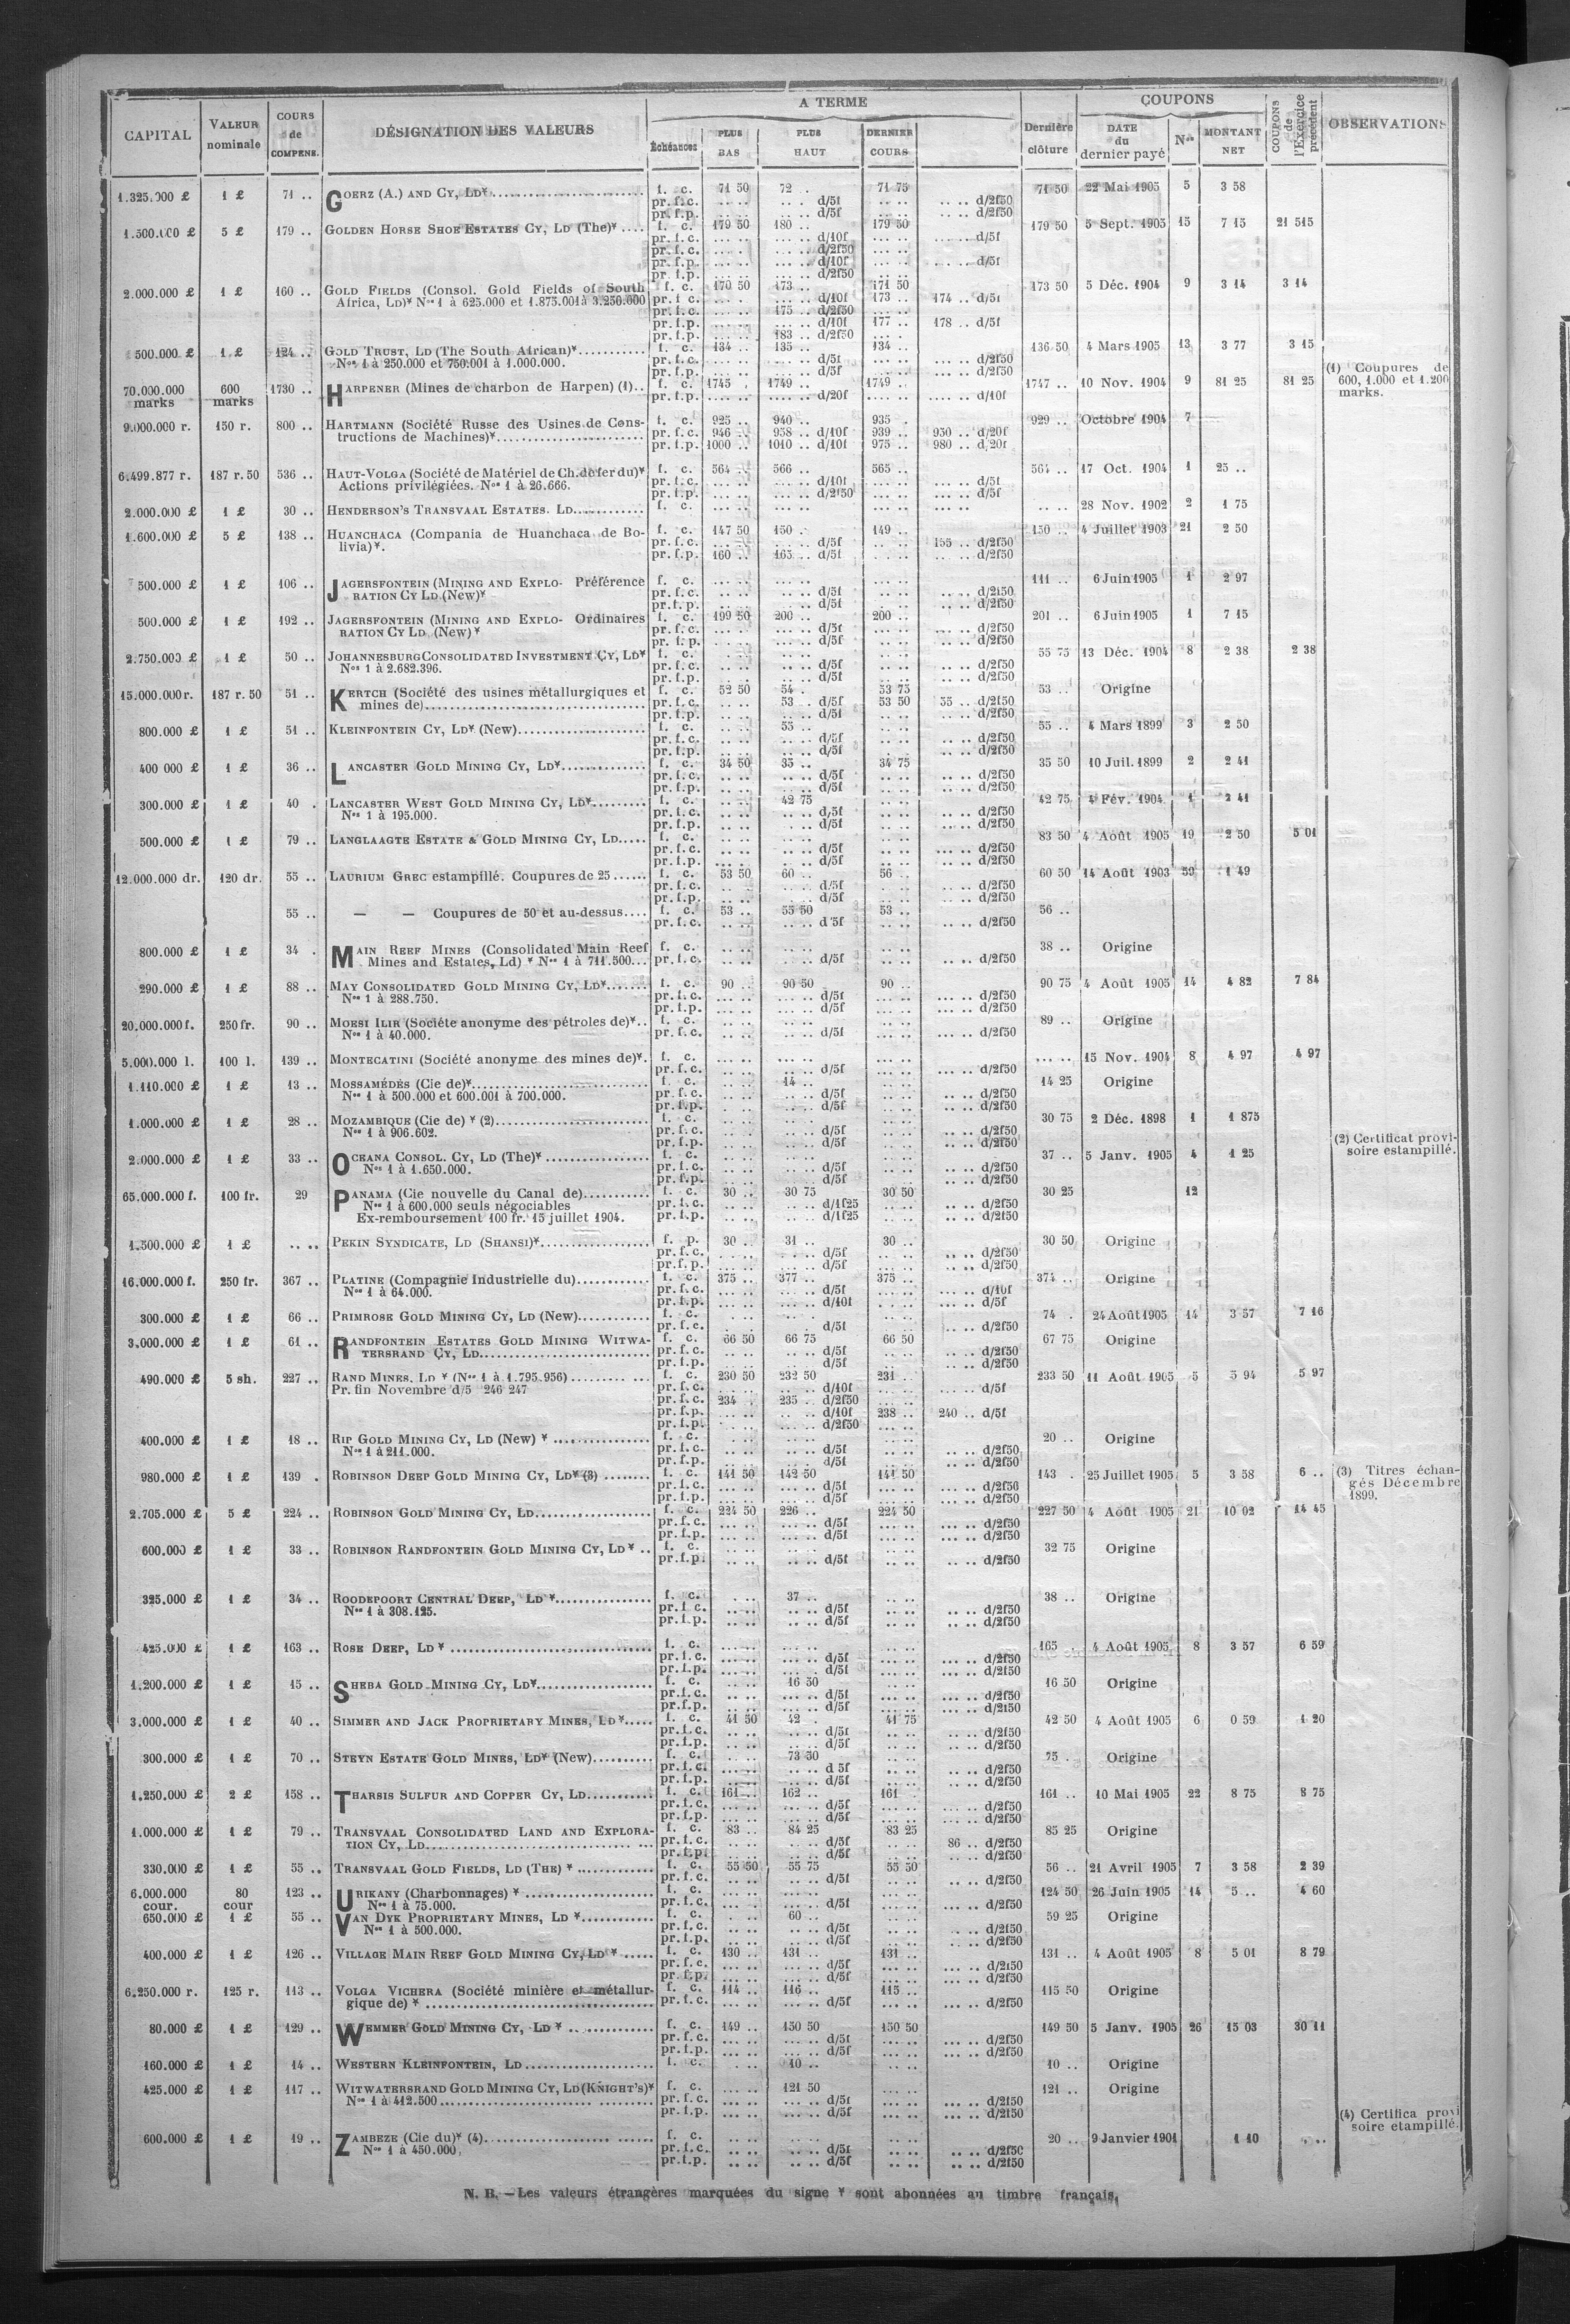 CAPITAL | VALEUR nominale | COURS de COMPENS. | DÉSIGNATION DES VALEURS | A TERME | Dernière clôture | COUPONS | COUPONS de l'Exercice précédent | OBSERVATIONS
Échéances | PLUS BAS | PLUS HAUT | DERNIER COURS | DATE du dernier payé | Nos | MONTANT NET
1.325.000 £ 1 £ 71 .. GOERZ (A.) AND CY, LD¥ f. c. 71 50 72 . 71 75 71 50 22 Mai 1905 5 3 58
pr. f.c. .. .. .. . d/5f .. .. .. .. d/2f50
pr. f.p. .. .. .. .. d/5f .. .. d/2f50
1.500.000 £ 5 £ 179 .. GOLDEN HORSE SHOE ESTATES CY, LD (The)¥ .... f. c. 179 50 180 .. 179 50 179 50 5 Sept. 1905 15 7 15 21 515
pr. f.c. ... .. ... .. d/10f ... .. ... .. d/5f
pr. f.c. ... .. ... .. d/2f50
pr. f.p. ... .. ... .. d/10f ... .. ... .. d/5f
pr. f.p. ... .. ... .. d/2f50
2.000.000 £ 1 £ 160 .. GOLD FIELDS (Consol. Gold Fields of South f. c. 170 50 173 .. 171 50 173 50 5 Déc. 1904 9 3 14 3 14
Africa, LD)¥ Nos 1 à 625.000 et 1.875.001 à 3.250.000 pr. f.c. ... .. d/10f 173 .. 174 .. d/5f
pr. f.c. ... .. 175 .. d/2f50
pr. f.p. ... .. d/10f 177 .. 178 .. d/5f
pr. f.p. 183 .. d/2f50
500.000 £ 1 £ 124 .. GOLD TRUST, LD (The South African)¥ f. c. 134 .. 135 .. 134 .. 136 50 4 Mars 1905 13 3 77 3 15
Nos 1 à 250.000 et 750.001 à 1.000.000. pr. f.c. ... .. d/5f ... .. d/2f50
pr. f.p. ... .. d/5f ... .. d/2f50
70.000.000 marks 600 marks 1730 .. HARPENER (Mines de charbon de Harpen) (1).. f. c. 1745 . 1749 .. 1749 .. 1747 .. 10 Nov. 1904 9 81 25 81 25 (1) Coupures de 600, 1.000 et 1.200 marks.
pr. f.p. .... .. d/20f .... .. d/10f
9.000.000 r. 150 r. 800 .. HARTMANN (Société Russe des Usines de Cons- f. c. 925 .. 940 .. 935 . 929 .. Octobre 1904 7
tructions de Machines)¥ pr. f.c. 946 .. 958 .. d/10f 939 .. 950 .. d/20f
pr. f.p. 1000 .. 1010 .. d/10f 975 .. 980 .. d/20f
6.499.877 r. 187 r. 50 536 .. HAUT-VOLGA (Société de Matériel de Ch. de fer du)¥ f. c. 564 .. 566 .. 565 .. 564 .. 17 Oct. 1904 1 25 ..
Actions privilégiées. Nos 1 à 26.666. pr. f.c. ... .. d/10f ... .. d/5f
pr. f.p. ... .. d/2f50 ... .. d/5f
2.000.000 £ 1 £ 30 .. HENDERSON'S TRANSVAAL ESTATES. LD f. c. .. .. 28 Nov. 1902 2 1 75
1.600.000 £ 5 £ 138 .. HUANCHACA (Compania de Huanchaca de Bo- f. c. 147 50 150 . 149 .. 150 .. 4 Juillet 1903 21 2 50
livia)¥. pr. f.c. ... .. d/5f 155 .. d/2f50
pr. f.p. 160 .. 165 .. d/5f ... .. d/2f50
500.000 £ 1 £ 106 .. JAGERSFONTEIN (MINING AND EXPLO- Préférence f. c. ... .. 111 .. 6 Juin 1905 1 2 97
RATION CY LD (New)¥ pr. f.c. ... .. d/5f ... .. d/2f50
pr. f.p. ... .. d/5f ... .. d/2f50
500.000 £ 1 £ 192 .. JAGERSFONTEIN (MINING AND EXPLO- Ordinaires f. c. 199 50 200 .. 200 .. 201 .. 6 Juin 1905 1 7 15
RATION CY LD (New)¥ pr. f.c. ... .. d/5f ... .. d/2f50
pr. f.p. ... .. d/5f ... .. d/2f50
2.750.000 £ 1 £ 50 .. JOHANNESBURG CONSOLIDATED INVESTMENT CY, LD¥ f. c. .. .. 55 75 13 Déc. 1904 8 2 38 2 38
Nos 1 à 2.682.396. pr. f.c. .. .. d/5f .. .. d/2f50
pr. f.p. .. .. d/5f .. .. d/2f50
15.000.000 r. 187 r. 50 51 .. KERTCH (Société des usines métallurgiques et f. c. 52 50 54 . 53 75 53 .. Origine
mines de) pr. f.c. .. .. 53 .. d/5f 53 50 55 .. d/2f50
pr. f.p. .. .. d/5f .. .. d/2f50
800.000 £ 1 £ 51 .. KLEINFONTEIN CY, LD¥ (New) f. c. 55 .. 55 .. 4 Mars 1899 3 2 50
pr. f.c. .. .. d/5f .. .. d/2f50
pr. f.p. .. .. d/5f .. .. d/2f50
400 000 £ 1 £ 36 .. LANCASTER GOLD MINING CY, LD¥ f. c. 34 50 35 .. 34 75 35 50 10 Juil. 1899 2 2 41
pr. f.c. .. .. d/5f .. .. d/2f50
pr. f.p. .. .. d/5f .. .. d/2f50
300.000 £ 1 £ 40 . LANCASTER WEST GOLD MINING CY, LD¥ f. c. 42 75 42 75 4 Fév. 1904 1 2 41
Nos 1 à 195.000. pr. f.c. .. .. d/5f .. .. d/2f50
pr. f.p. .. .. d/5f .. .. d/2f50
500.000 £ 1 £ 79 .. LANGLAAGTE ESTATE & GOLD MINING CY, LD..... f. c. .. .. 83 50 4 Août 1905 19 2 50 5 01
pr. f.c. .. .. d/5f ... .. d/2f50
pr. f.p. .. .. d/5f ... .. d/2f50
12.000.000 dr. 120 dr. 55 .. LAURIUM GREC estampillé. Coupures de 25 ...... f. c. 53 50 60 .. 56 .. 60 50 14 Août 1903 59 1 49
pr. f.c. .. .. d/5f .. .. d/2f50
pr. f.p. .. .. d/5f .. .. d/2f50
55 .. — — Coupures de 50 et au-dessus.... f. c. 53 .. 55 50 53 .. 56 ..
pr. f.c. .. .. d 5f .. .. d/2f50
800.000 £ 1 £ 34 . MAIN REEF MINES (Consolidated Main Reef f. c. .. .. 38 .. Origine
Mines and Estates, Ld) ¥ Nos 1 à 711.500... pr. f.c. .. .. d/5f .. .. d/2f50
290.000 £ 1 £ 88 .. MAY CONSOLIDATED GOLD MINING CY, LD¥ f. c. 90 .. 90 50 90 .. 90 75 4 Août 1905 14 4 82 7 84
Nos 1 à 288.750. pr. f.c. ... .. d/5f ... .. d/2f50
pr. f.p. ... .. d/5f ... .. d/2f50
20.000.000 f. 250 fr. 90 .. MOESI ILIR (Société anonyme des pétroles de)¥.. f. c. .. .. 89 .. Origine
Nos 1 à 40.000. pr. f.c. .. .. d/5f ... .. d/2f50
5.000.000 l. 100 l. 139 .. MONTECATINI (Société anonyme des mines de)¥. f. c. ... .. ... .. 15 Nov. 1904 8 4 97 4 97
pr. f.c. ... .. d/5f ... .. d/2f50
1.110.000 £ 1 £ 13 .. MOSSAMÉDÈS (Cie de)¥ f. c. 14 .. 14 25 Origine
Nos 1 à 500.000 et 600.001 à 700.000. pr. f.c. .. .. d/5f .. .. d/2f50
pr. f.p. .. .. d/5f .. .. d/2f50
1.000.000 £ 1 £ 28 .. MOZAMBIQUE (Cie de) ¥ (2) f. c. .. .. 30 75 2 Déc. 1898 1 1 875
Nos 1 à 906.602. pr. f.c. .. .. d/5f .. .. d/2f50
pr. f.p. .. .. d/5f .. .. d/2f50 (2) Certificat provi-
soire estampillé.
2.000.000 £ 1 £ 33 .. OCEANA CONSOL. CY, LD (The)¥ f. c. .. .. 37 .. 5 Janv. 1905 4 1 25
Nos 1 à 1.650.000. pr. f.c. .. .. d/5f .. .. d/2f50
pr. f.p. .. .. d/5f .. .. d/2f50
65.000.000 f. 100 fr. 29 PANAMA (Cie nouvelle du Canal de) f. c. 30 .. 30 75 30 50 30 25 12
Nos 1 à 600.000 seuls négociables pr. f.c. .. .. d/1f25 .. .. d/2f50
Ex-remboursement 100 fr. 15 juillet 1904. pr. f.p. .. .. d/1f25 .. .. d/2f50
1.500.000 £ 1 £ .. .. PEKIN SYNDICATE, LD (SHANSI)¥ f. p. 30 .. 31 .. 30 .. 30 50 Origine
pr. f.c. .. .. d/5f .. .. d/2f50
pr. f.p. .. .. d/5f .. .. d/2f50
16.000.000 f. 250 fr. 367 .. PLATINE (Compagnie Industrielle du) f. c. 375 .. 377 .. 375 .. 374 .. Origine
Nos 1 à 64.000. pr. f.c. ... .. d/5f ... .. d/10f
pr. f.p. ... .. d/10f ... .. d/5f
300.000 £ 1 £ 66 .. PRIMROSE GOLD MINING CY, LD (New) f. c. .. .. 74 . 24 Août 1905 14 3 57 7 16
pr. f.c. .. .. d/5f .. .. d/2f50
3.000.000 £ 1 £ 61 .. RANDFONTEIN ESTATES GOLD MINING WITWA- f. c. 66 50 66 75 66 50 67 75 Origine
TERSRAND CY, LD pr. f.c. .. .. d/5f .. .. d/2f50
pr. f.p. .. .. d/5f .. .. d/2f50
490.000 £ 5 sh. 227 .. RAND MINES, LD ¥ (Nos 1 à 1.795.956) f. c. 230 50 232 50 231 .. 233 50 11 Août 1905 5 5 94 5 97
Pr. fin Novembre d/5 246 247 pr. f.c. ... .. d/10f ... .. d/5f
pr. f.c. 234 . 235 .. d/2f50
pr. f.p. ... .. d/10f 238 .. 240 .. d/5f
pr. f.p. ... .. d/2f50
400.000 £ 1 £ 18 .. RIP GOLD MINING CY, LD (New) ¥ f. c. .. .. 20 .. Origine
Nos 1 à 211.000. pr. f.c. .. .. d/5f .. .. d/2f50
pr. f.p. .. .. d/5f .. .. d/2f50
980.000 £ 1 £ 139 . ROBINSON DEEP GOLD MINING CY, LD¥ (3) f. c. 141 50 142 50 141 50 143 . 25 Juillet 1905 5 3 58 6 .. (3) Titres échan-
pr. f.c. ... .. d/5f ... .. d/2f50 gés Décembre
pr. f.p. ... .. d/5f ... .. d/2f50 1899.
2.705.000 £ 5 £ 224 .. ROBINSON GOLD MINING CY, LD f. c. 224 50 226 .. 224 50 227 50 4 Août 1905 21 10 02 14 45
pr. f.c. ... .. d/5f ... .. d/2f50
pr. f.p. ... .. d/5f ... .. d/2f50
600.000 £ 1 £ 33 .. ROBINSON RANDFONTEIN GOLD MINING CY, LD¥ .. f. c. .. .. 32 75 Origine
pr. f.p. .. .. d/5f .. .. d/2f50
325.000 £ 1 £ 34 .. ROODEPOORT CENTRAL DEEP, LD ¥ f. c. 37 .. 38 .. Origine
Nos 1 à 308.125. pr. f.c. .. .. d/5f .. .. d/2f50
pr. f.p. .. .. d/5f .. .. d/2f50
425.000 £ 1 £ 163 .. ROSE DEEP, LD ¥ f. c. ... .. 165 . 4 Août 1905 8 3 57 6 59
pr. f.c. ... .. d/5f ... .. d/2f50
pr. f.p. ... .. d/5f ... .. d/2f50
1.200.000 £ 1 £ 15 .. SHEBA GOLD MINING CY, LD¥ f. c. 16 50 16 50 Origine
pr. f.c. .. .. d/5f .. .. d/2f50
pr. f.p. .. .. d/5f .. .. d/2f50
3.000.000 £ 1 £ 40 .. SIMMER AND JACK PROPRIETARY MINES, LD¥ f. c. 41 50 42 . 41 75 42 50 4 Août 1905 6 0 59 1 20
pr. f.c. .. .. d/5f .. .. d/2f50
pr. f.p. .. .. d/5f .. .. d/2f50
300.000 £ 1 £ 70 .. STEYN ESTATE GOLD MINES, LD¥ (New) f. c. 73 50 75 . Origine
pr. f.c. .. .. d 5f ... .. d/2f50
pr. f.p. .. .. d/5f ... .. d/2f50
1.250.000 £ 2 £ 158 .. THARSIS SULFUR AND COPPER CY, LD f. c. 161 .. 162 .. 161 . 161 .. 10 Mai 1905 22 8 75 8 75
pr. f.c. ... .. d/5f ... .. d/2f50
pr. f.p. ... .. d/5f ... .. d/2f50
1.000.000 £ 1 £ 79 .. TRANSVAAL CONSOLIDATED LAND AND EXPLORA- f. c. 83 .. 84 25 83 25 85 25 Origine
TION CY, LD pr. f.c. ... .. d/5f 86 .. d/2f50
pr. f.p. ... .. d/5f .. .. d/2f50
330.000 £ 1 £ 55 .. TRANSVAAL GOLD FIELDS, LD (THE) ¥ f. c. 55 50 55 75 55 50 56 .. 21 Avril 1905 7 3 58 2 39
pr. f.c. .. .. d/5f .. .. d/2f50
6.000.000 cour. 80 cour 123 .. URIKANY (Charbonnages) ¥ f. c. ... .. 124 50 26 Juin 1905 14 5 .. 4 60
Nos 1 à 75.000. pr. f.c. ... .. d/5f ... .. d/2f50
650.000 £ 1 £ 55 .. VAN DYK PROPRIETARY MINES, LD ¥ f. c. 60 .. 59 25 Origine
Nos 1 à 500.000. pr. f.c. .. .. d/5f .. .. d/2f50
pr. f.p. .. .. d/5f .. .. d/2f50
400.000 £ 1 £ 126 .. VILLAGE MAIN REEF GOLD MINING CY, LD ¥ f. c. 130 .. 131 .. 131 .. 131 .. 4 Août 1905 8 5 01 8 79
pr. f.c. ... .. d/5f ... .. d/2f50
pr. f.p. ... .. d/5f ... .. d/2f50
6.250.000 r. 125 r. 113 .. VOLGA VICHERA (Société minière et métallur- f. c. 114 .. 116 .. 115 .. 115 50 Origine
gique de) ¥ pr. f.c. ... .. d/5f ... .. d/2f50
80.000 £ 1 £ 129 .. WEMMER GOLD MINING CY, LD ¥ f. c. 149 .. 150 50 150 50 149 50 5 Janv. 1905 26 15 03 30 11
pr. f.c. ... .. d/5f ... .. d/2f50
pr. f.p. ... .. d/5f ... .. d/2f50
160.000 £ 1 £ 14 .. WESTERN KLEINFONTEIN, LD f. c. 10 .. 10 .. Origine
425.000 £ 1 £ 117 .. WITWATERSRAND GOLD MINING CY, LD (KNIGHT'S)¥ f. c. ... .. 121 50 121 .. Origine
Nos 1 à 412.500 pr. f.c. ... .. d/5f ... .. d/2f50
pr. f.p. ... .. d/5f ... .. d/2f50
(4) Certifica provi
soire etampillé.
600.000 £ 1 £ 19 .. ZAMBEZE (Cie du)¥ (4) f. c. .. .. 20 .. 9 Janvier 1901 1 10
Nos 1 à 450.000. pr. f.c. .. .. d/5f .. .. d/2f50
pr. f.p. .. .. d/5f .. .. d/2f50
N. B. — Les valeurs étrangères marquées du signe ¥ sont abonnées au timbre français.